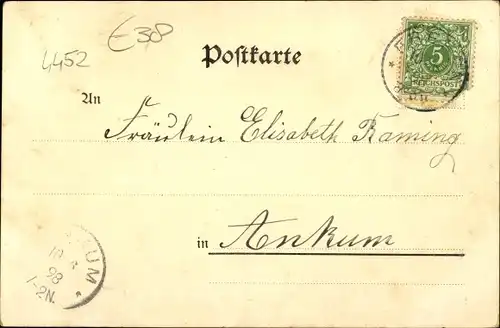 4452
E38
Postkarte
5
REICHSPOST
An
Fräulein Elisabeth Raming
in Ankum
98
1-2N.